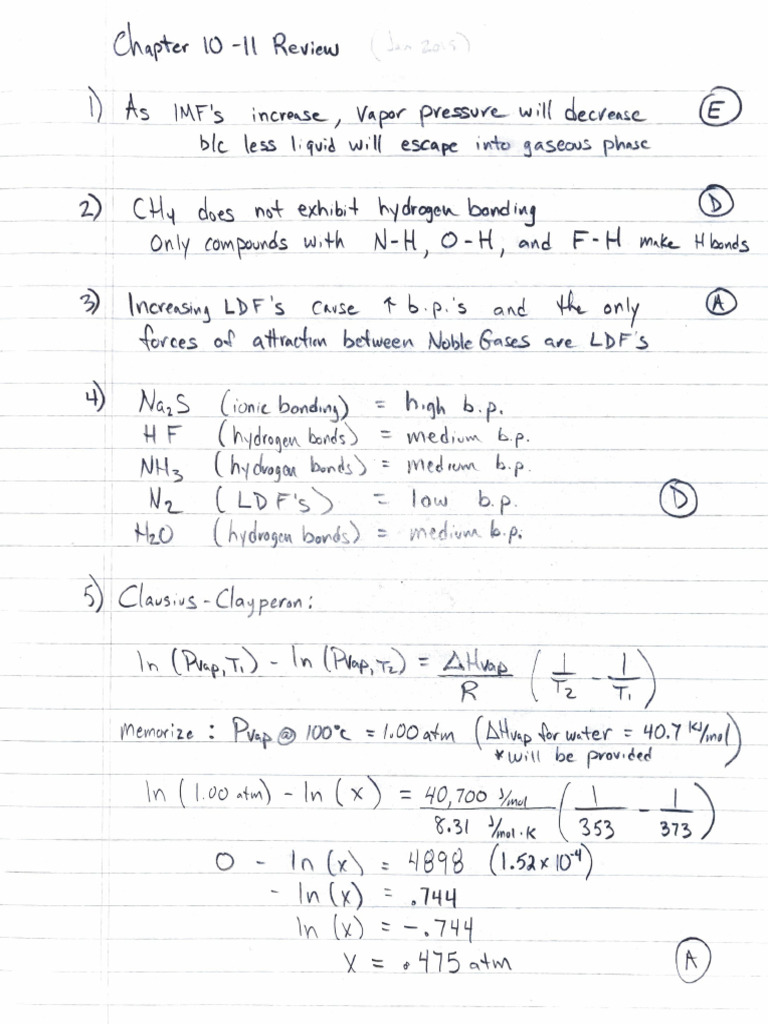 Chapter 10-11 Review (Jan 2015)
1) As IMF's increase, vapor pressure will decrease (E)
b/c less liquid will escape into gaseous phase
2) CH4 does not exhibit hydrogen bonding (D)
Only compounds with N-H, O-H, and F-H make H bonds
3) Increasing LDF's cause ↑ b.p.'s and the only (A)
forces of attraction between Noble Gases are LDF's
4) Na₂S (ionic bonding) = high b.p.
HF (hydrogen bonds) = medium b.p.
NH₃ (hydrogen bonds) = medium b.p.
N₂ (LDF's) = low b.p. (D)
H₂O (hydrogen bonds) = medium b.p.
5) Clausius-Clayperon:
ln (Pvap,T₁) - ln (Pvap,T₂) = ΔHvap/R (1/T₂ - 1/T₁)
Memorize: Pvap @ 100°C = 1.00 atm (ΔHvap for water = 40.7 kJ/mol)
*will be provided
ln (1.00 atm) - ln (x) = 40,700 J/mol / 8.31 J/mol·K (1/353 - 1/373)
0 - ln (x) = 4898 (1.52 x 10⁻⁴)
- ln (x) = .744
ln (x) = -.744
X = .475 atm (A)